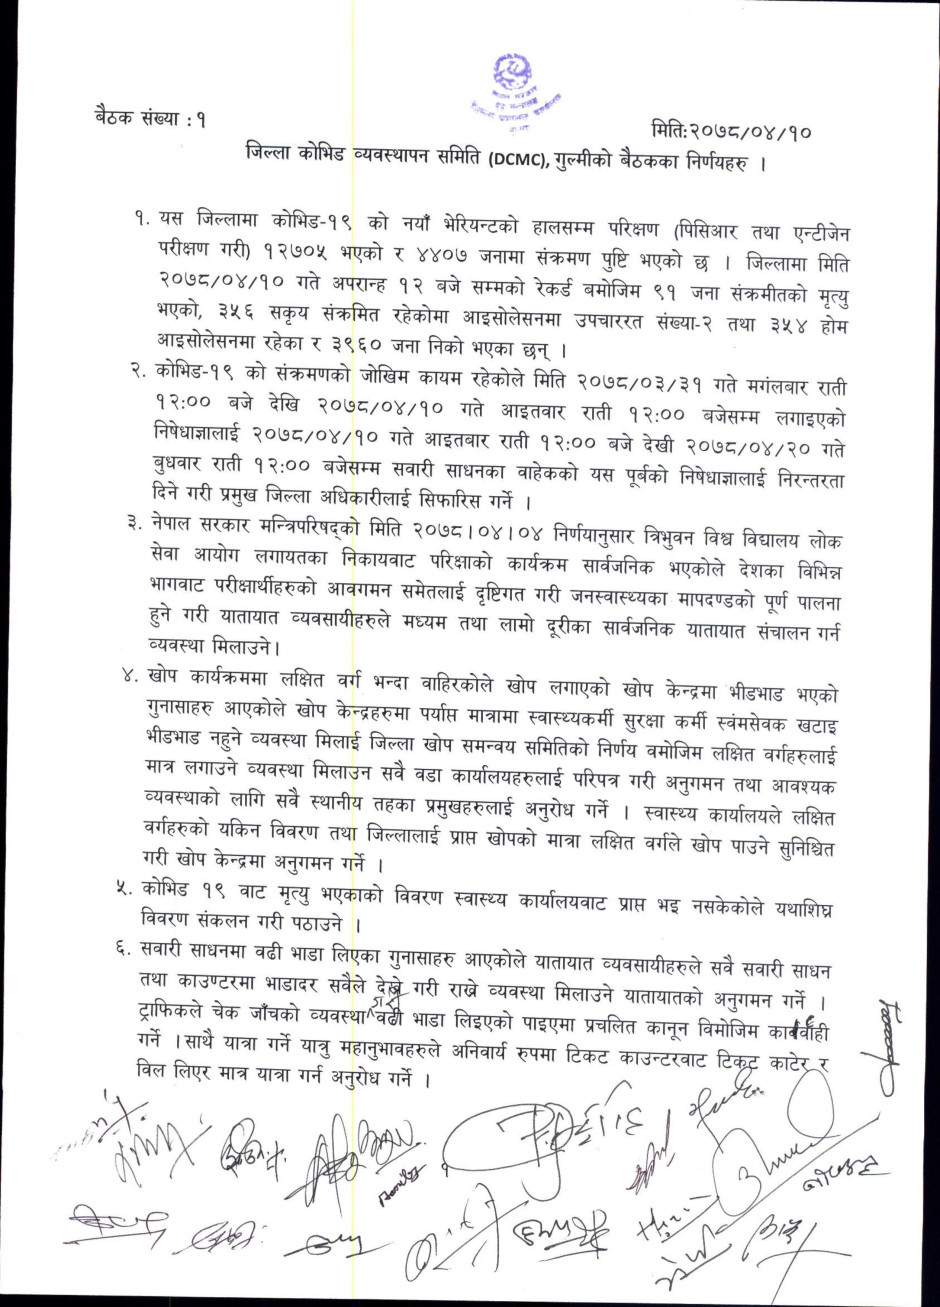 बैठक संख्या : १
मिति:२०७८/०४/१०
जिल्ला कोभिड व्यवस्थापन समिति (DCMC), गुल्मीको बैठकका निर्णयहरु ।
१. यस जिल्लामा कोभिड-१९ को नयाँ भेरियन्टको हालसम्म परिक्षण (पिसिआर तथा एन्टीजेन
परीक्षण गरी) १२७०५ भएको र ४४०७ जनामा संक्रमण पुष्टि भएको छ । जिल्लामा मिति
२०७८/०४/१० गते अपरान्ह १२ बजे सम्मको रेकर्ड बमोजिम ९१ जना संक्रमीतको मृत्यु
भएको, ३५६ सकृय संक्रमित रहेकोमा आइसोलेसनमा उपचाररत संख्या-२ तथा ३५४ होम
आइसोलेसनमा रहेका र ३९६० जना निको भएका छन् ।
२. कोभिड-१९ को संक्रमणको जोखिम कायम रहेकोले मिति २०७८/०३/३१ गते मगंलबार राती
१२:०० बजे देखि २०७८/०४/१० गते आइतवार राती १२:०० बजेसम्म लगाइएको
निषेधाज्ञालाई २०७८/०४/१० गते आइतबार राती १२:०० बजे देखी २०७८/०४/२० गते
बुधवार राती १२:०० बजेसम्म सवारी साधनका वाहेकको यस पूर्बको निषेधाज्ञालाई निरन्तरता
दिने गरी प्रमुख जिल्ला अधिकारीलाई सिफारिस गर्ने ।
३. नेपाल सरकार मन्त्रिपरिषद्को मिति २०७८।०४।०४ निर्णयानुसार त्रिभुवन विश्व विद्यालय लोक
सेवा आयोग लगायतका निकायवाट परिक्षाको कार्यक्रम सार्वजनिक भएकोले देशका विभिन्न
भागवाट परीक्षार्थीहरुको आवगमन समेतलाई दृष्टिगत गरी जनस्वास्थ्यका मापदण्डको पूर्ण पालना
हुने गरी यातायात व्यवसायीहरुले मध्यम तथा लामो दूरीका सार्वजनिक यातायात संचालन गर्न
व्यवस्था मिलाउने।
४. खोप कार्यक्रममा लक्षित वर्ग भन्दा वाहिरकोले खोप लगाएको खोप केन्द्रमा भीडभाड भएको
गुनासाहरु आएकोले खोप केन्द्रहरुमा पर्याप्त मात्रामा स्वास्थ्यकर्मी सुरक्षा कर्मी स्वंमसेवक खटाइ
भीडभाड नहुने व्यवस्था मिलाई जिल्ला खोप समन्वय समितिको निर्णय वमोजिम लक्षित वर्गहरुलाई
मात्र लगाउने व्यवस्था मिलाउन सवै वडा कार्यालयहरुलाई परिपत्र गरी अनुगमन तथा आवश्यक
व्यवस्थाको लागि सवै स्थानीय तहका प्रमुखहरुलाई अनुरोध गर्ने । स्वास्थ्य कार्यालयले लक्षित
वर्गहरुको यकिन विवरण तथा जिल्लालाई प्राप्त खोपको मात्रा लक्षित वर्गले खोप पाउने सुनिश्चित
गरी खोप केन्द्रमा अनुगमन गर्ने ।
५. कोभिड १९ वाट मृत्यु भएकाको विवरण स्वास्थ्य कार्यालयवाट प्राप्त भइ नसकेकोले यथाशिघ्र
विवरण संकलन गरी पठाउने ।
६. सवारी साधनमा वढी भाडा लिएका गुनासाहरु आएकोले यातायात व्यवसायीहरुले सवै सवारी साधन
तथा काउण्टरमा भाडादर सवैले देख्ने गरी राख्ने व्यवस्था मिलाउने यातायातको अनुगमन गर्ने ।
ट्राफिकले चेक जाँचको व्यवस्था गर्ने वढी भाडा लिइएको पाइएमा प्रचलित कानून विमोजिम कार्वाही
गर्ने ।साथै यात्रा गर्ने यात्रु महानुभावहरुले अनिवार्य रुपमा टिकट काउन्टरवाट टिकट काटेर र
विल लिएर मात्र यात्रा गर्न अनुरोध गर्ने ।